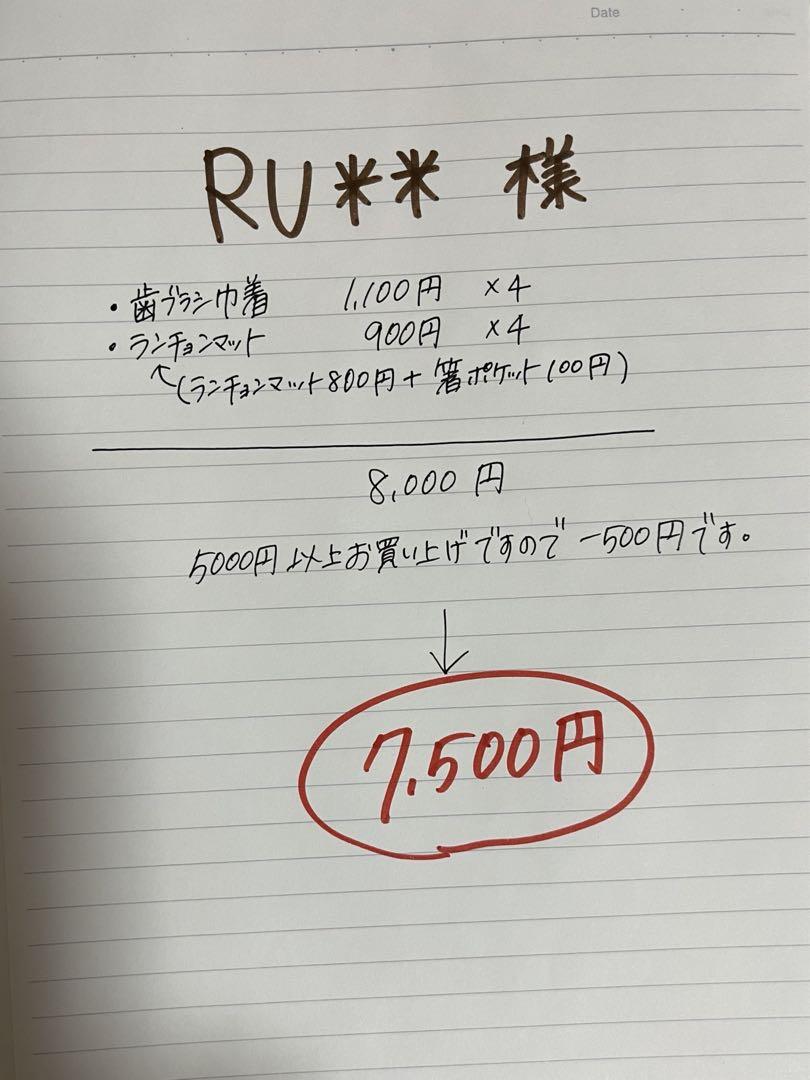 Date
RU** 様
・歯ブラシ巾着 1,100円 ×4
・ランチョンマット 900円 ×4
↖(ランチョンマット800円+箸ポケット100円)
8,000円
5000円以上お買い上げですので-500円です。
↓
7,500円